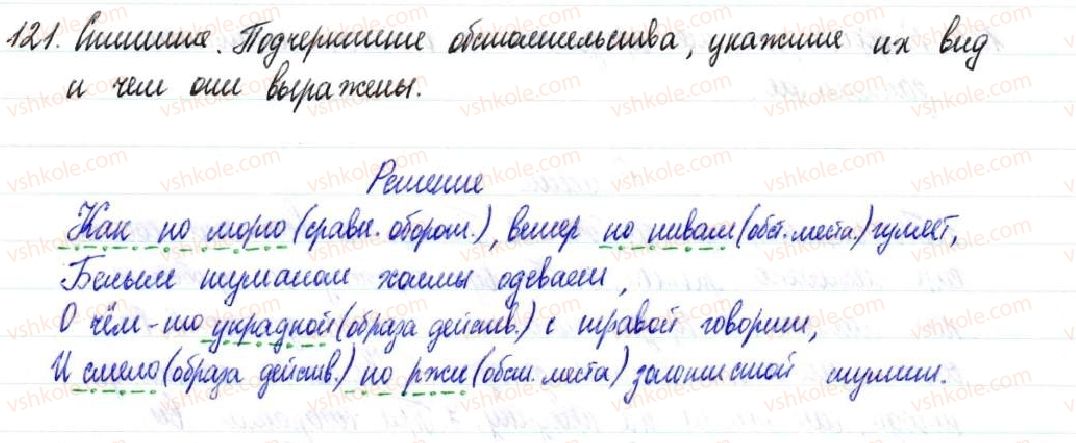 121. Спишите. Подчеркните обстоятельства, укажите их вид
и чем они выражены.
Решение
Как по морю (сравн. оборот.), ветер по нивам (обст. места) гуляет,
Белым туманом холмы одевает,
О чём-то украдкой (образа действ.) с травой говорит,
И смело (образа действ.) по ржи (обст. места) золотистой шумит.
vshkole.com